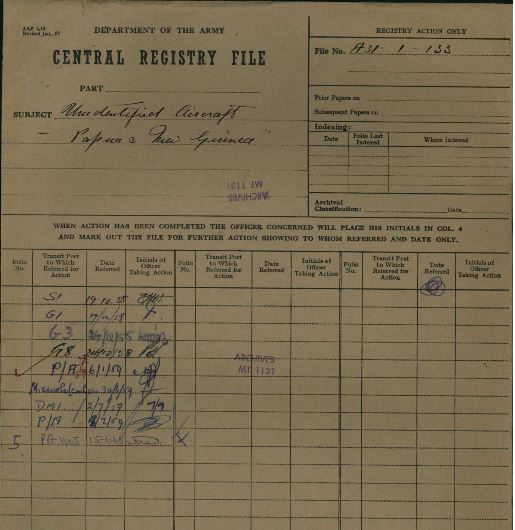 AAF L19
Revised Jan., 57
DEPARTMENT OF THE ARMY
CENTRAL REGISTRY FILE
PART
SUBJECT Unidentified Aircraft
Papua & New Guinea
REGISTRY ACTION ONLY
File No. A31 1 - 133
Prior Papers on
Subsequent Papers on
Indexing:
Date Folio Last Indexed Where Indexed
Archival
Classification: Date
ARCHIVES
MT 1131
WHEN ACTION HAS BEEN COMPLETED THE OFFICER CONCERNED WILL PLACE HIS INITIALS IN COL. 4
AND MARK OUT THE FILE FOR FURTHER ACTION SHOWING TO WHOM REFERRED AND DATE ONLY.
Folio No. Transit Post to Which Referred for Action Date Referred Initials of Officer Taking Action Folio No. Transit Post to Which Referred for Action Date Referred Initials of Officer Taking Action Folio No. Transit Post to Which Referred for Action Date Referred Initials of Officer Taking Action
S1 19.12.58
G1
G3 24/12/58
G8
P/A 6/1/59
D.M.I. 2/7/59
P/A 2/7/59
5 PA 15-1-65
ARCHIVES
MT 1131